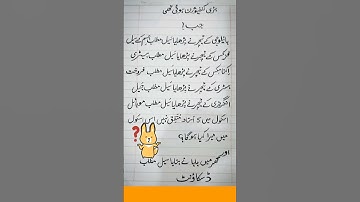 بڑی کنفیوژن ہوتی تھی
جب!
بائیولوجی کے ٹیچر نے پڑھایا سیل مطلب جسم کے سیل
فزکس کے ٹیچر نے پڑھایا سیل مطلب بیٹری
اکنامکس کے ٹیچر نے پڑھایا سیل مطلب فروخت
ہسٹری کے ٹیچر نے پڑھایا سیل مطلب جیل
انگریزی کے ٹیچر نے پڑھایا سیل مطلب موبائل
اسکول میں 5 استاد متفق نہیں اس اسکول
میں میرا کیا ہوگا؟
اور گھر میں بابا نے بتایا سیل مطلب
ڈسکاؤنٹ